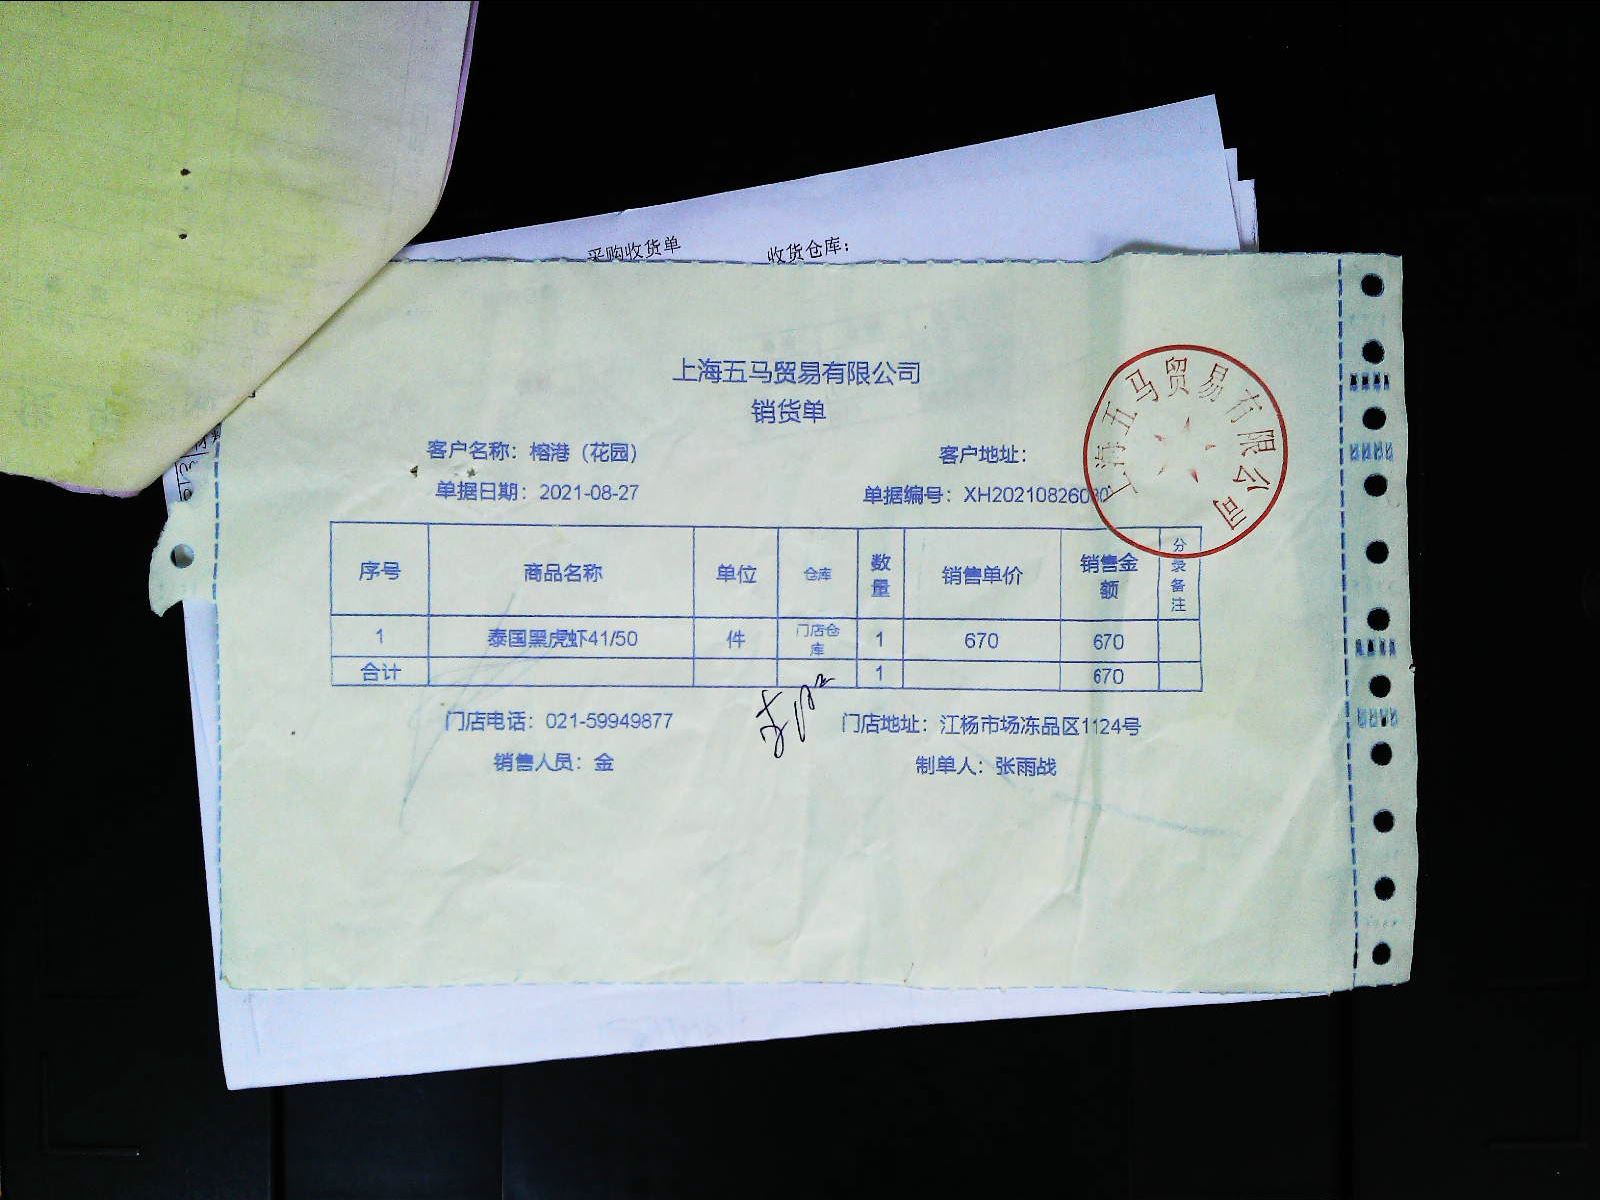 采购收货单 收货仓库：
上海五马贸易有限公司
销货单
客户名称：榕港（花园） 客户地址：
单据日期：2021-08-27 单据编号：XH20210826030
上海五马贸易有限公司
序号 商品名称 单位 仓库 数量 销售单价 销售金额 分录备注
1 泰国黑虎虾41/50 件 门店仓库 1 670 670
合计 1 670
门店电话：021-59949877 门店地址：江杨市场冻品区1124号
销售人员：金 制单人：张雨战